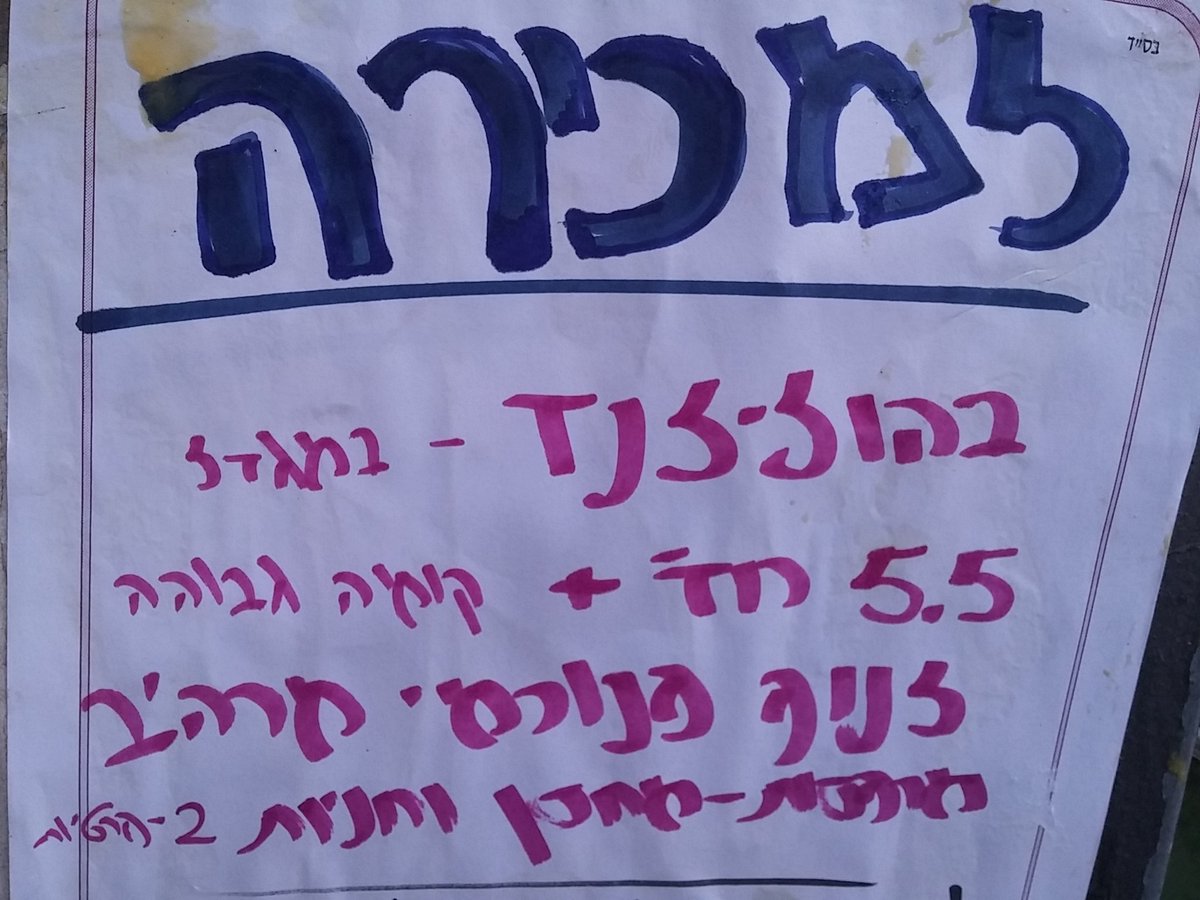 בס״ד
למכירה
בהולילנד - במגדל
5.5 חד' + קומה גבוהה
לניף פנורמי מרהיב
מרפסת-מחסן וחניות 2-פרטיות